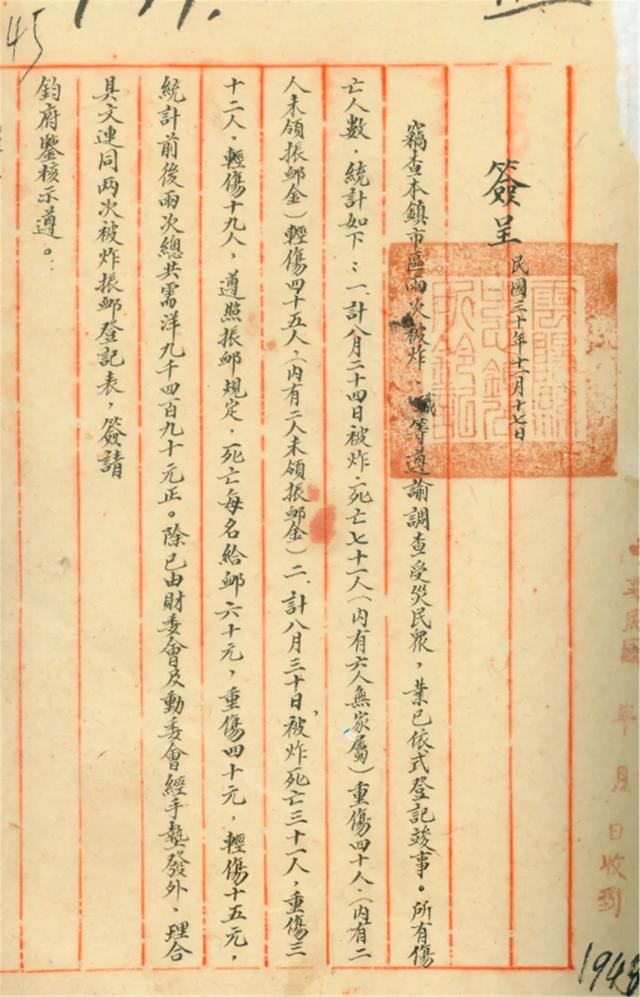 簽呈 民國三十年十一月十七日
竊查本鎮市區兩次被炸、職等遵諭調查受災民眾，業已依式登記竣事。所有傷
亡人數，統計如下：一、計八月二十四日被炸，死亡七十一人（內有六人無家屬）重傷四十人，（內有二
人未領振卹金）輕傷四十五人，（內有二人未領振卹金）二、計八月三十日被炸死亡三十一人，重傷三
十二人，輕傷十九人，遵照振卹規定，死亡每名給卹六十元，重傷四十元，輕傷十五元，
統計前後兩次總共需洋九千四百九十元正。除已由財委會及動委會經手墊發外，理合
具文連同兩次被炸振卹登記表，簽請
鈞府鑒核示遵。
45
年 月 日收到
1943